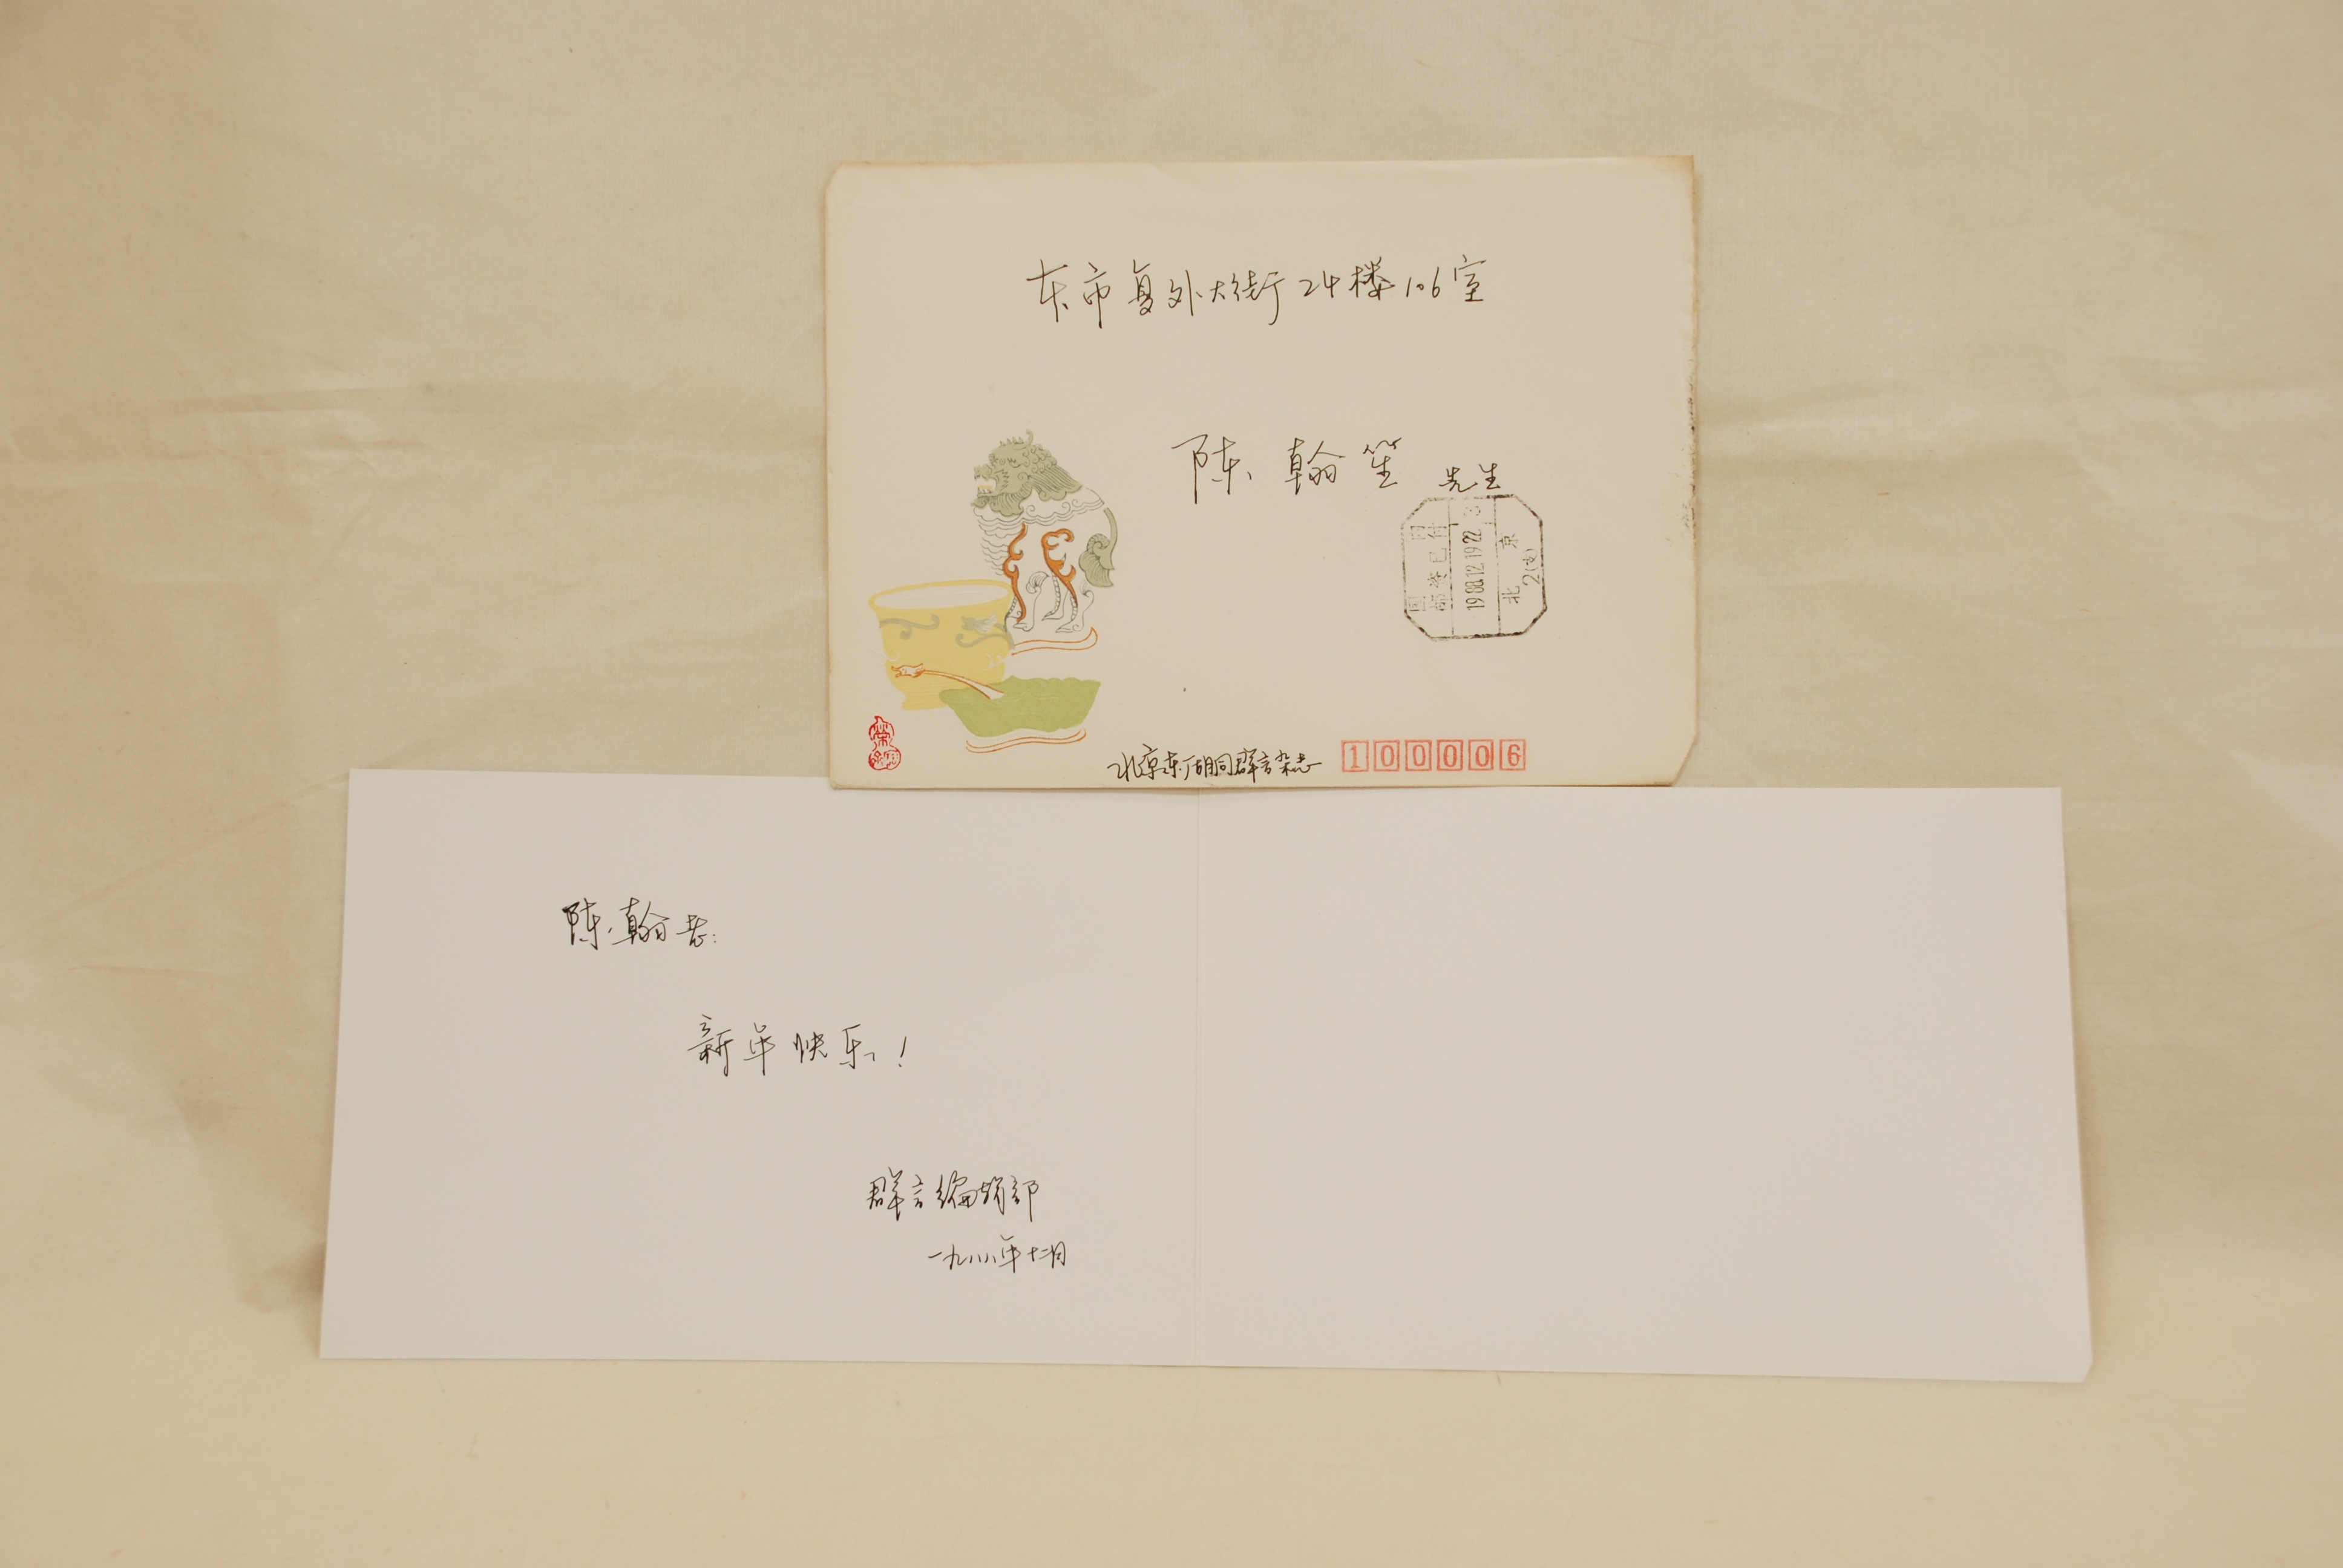 本市复外大街24楼106室
陈翰笙 先生
国内
邮资已付
1988.12.19 22
北京
2(支)
荣
北京东厂胡同群言杂志
100006
陈翰老:
新年快乐!
群言编辑部
一九八八年十二月